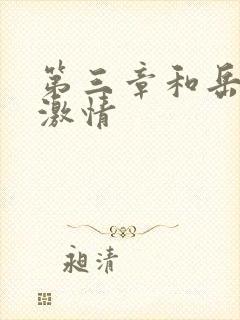 第三章和岳
激情
昶清